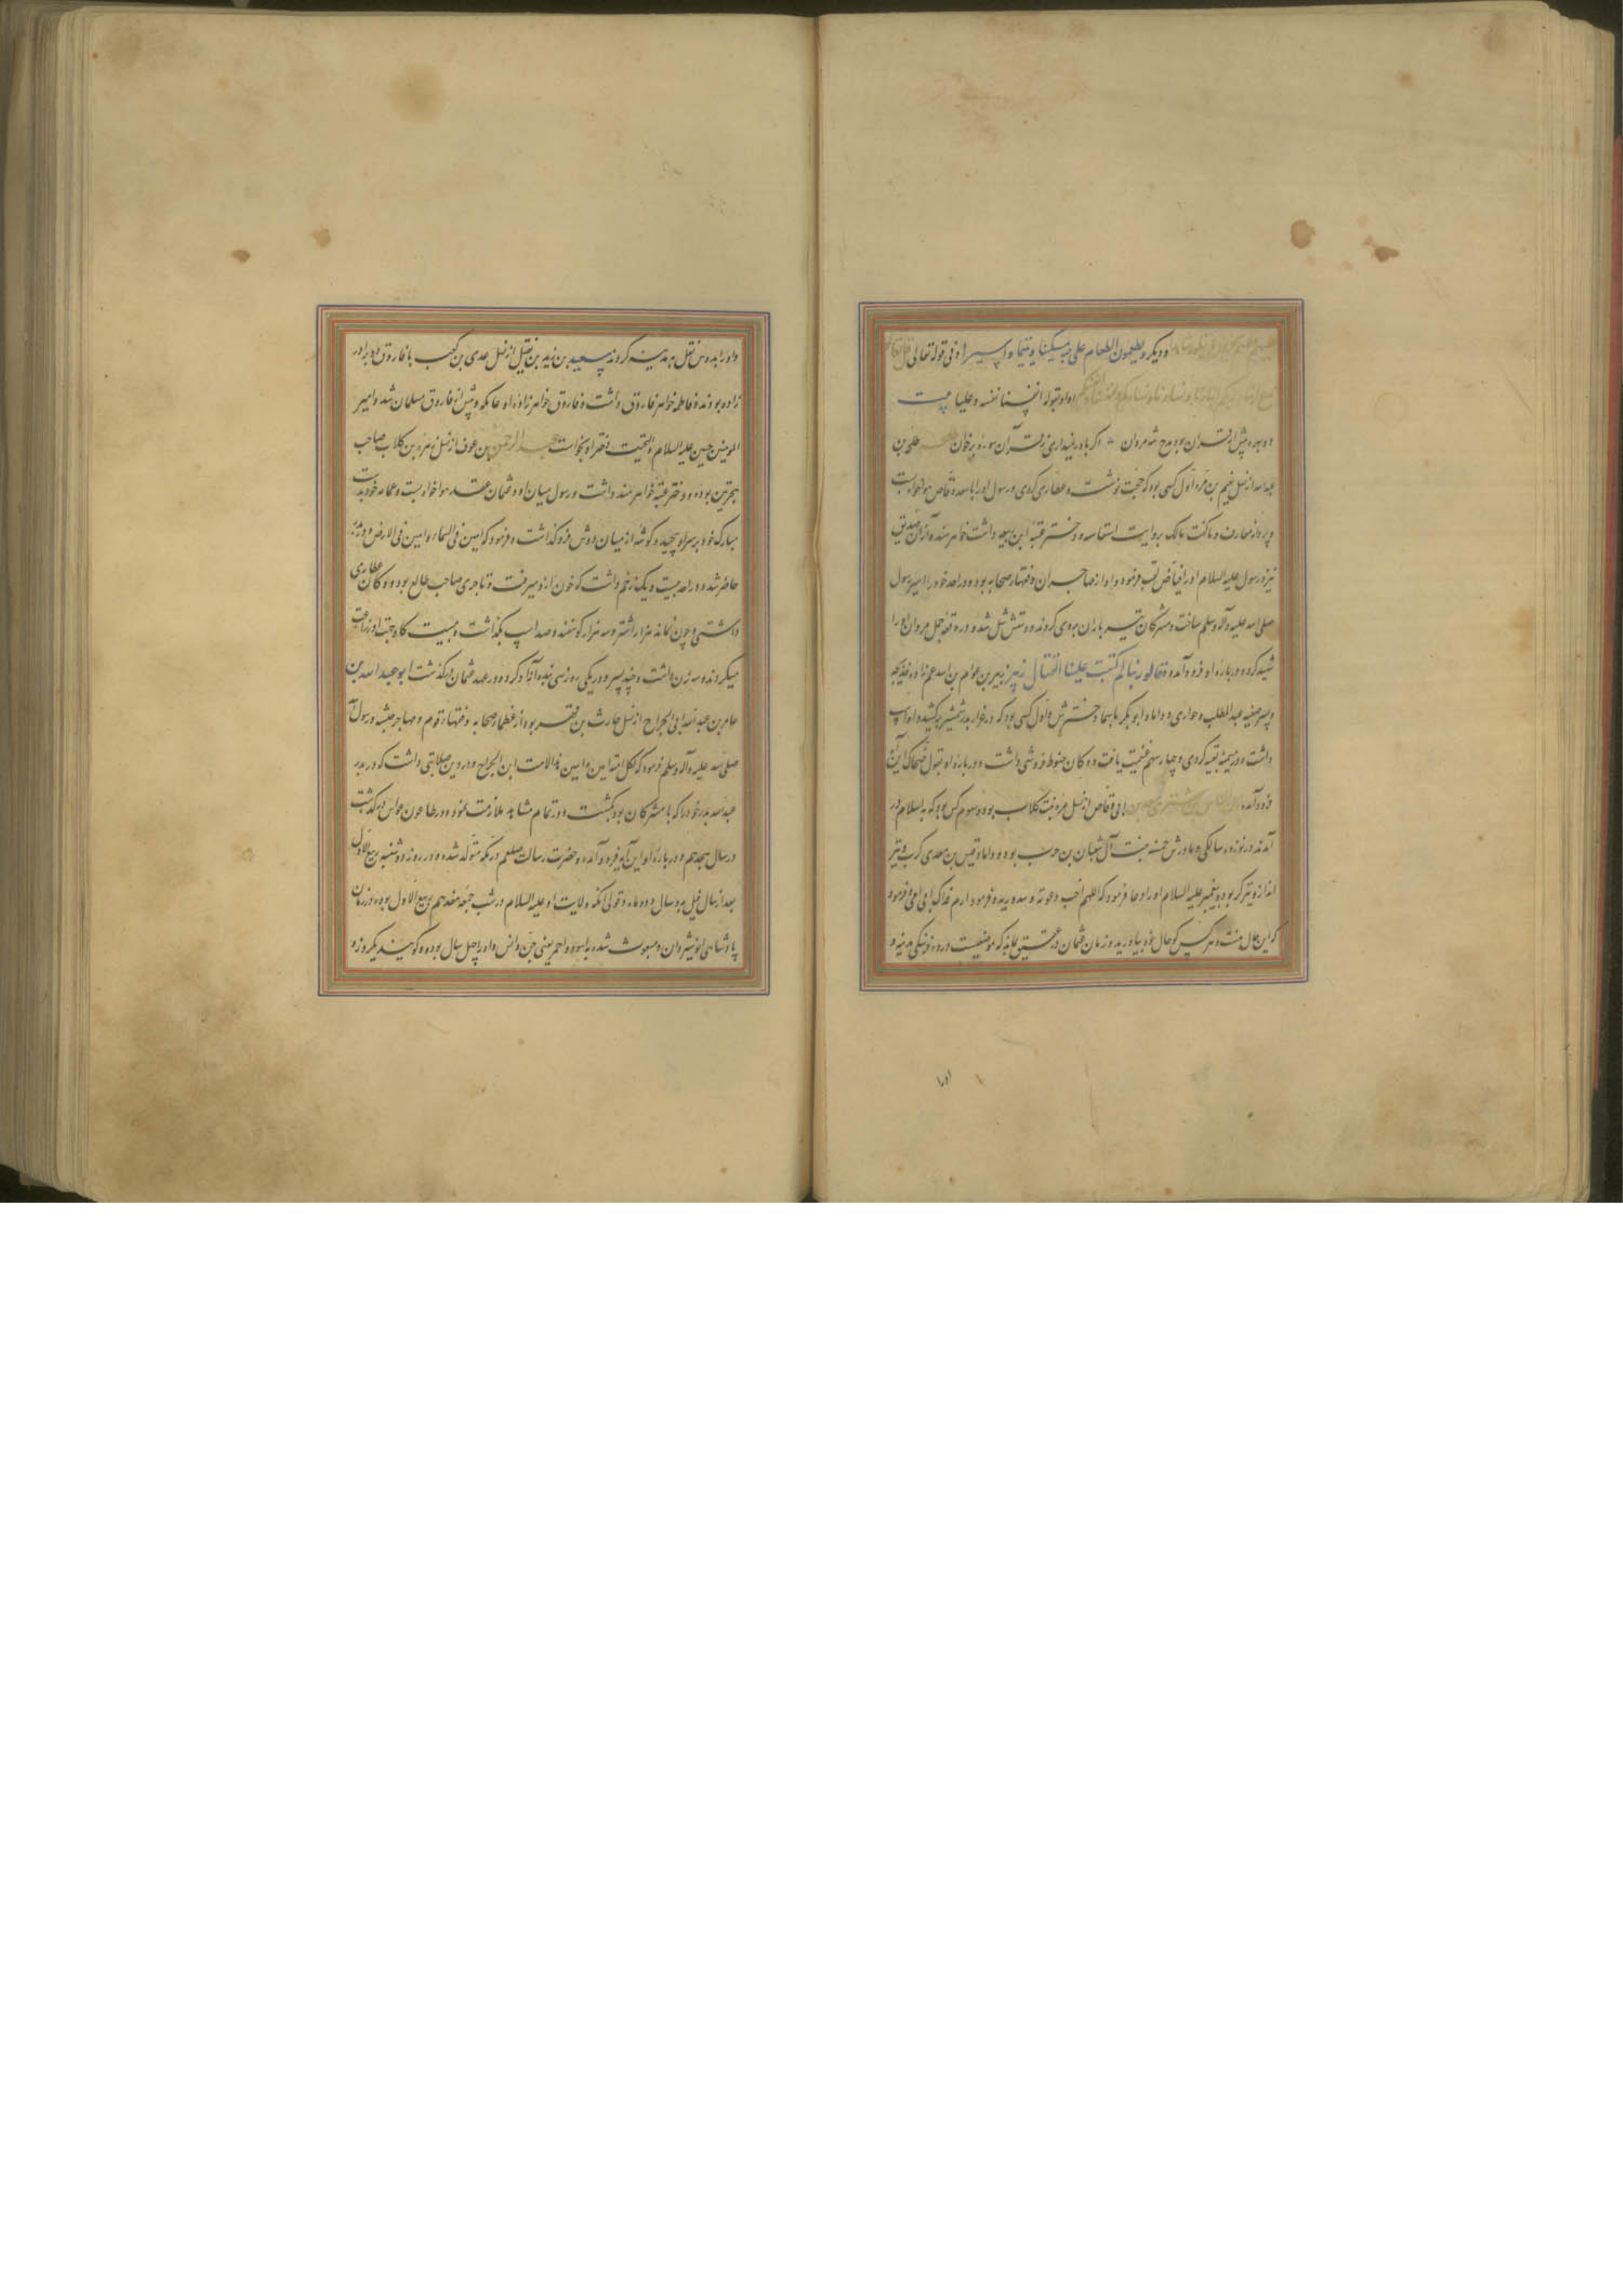 ودیکر ویطعمون الطعام علی حبه مسکینا ویتیما واسیرا وفی قوله تعالی
او او بقوله انفسنا نفسه وعلیا بیت
دو بهره پیش از قران بود مدح شه مردان اکر باور نمیداری ز قرآن سوره برخوان طلحه بن
عبدالله از نسل تیم بن مره اول کسی بود که حجت نوشت وعطاری کردی ورسول اورا با سعد وقاص مواخواه بست
ودر معارف وماکنت مالک بروایت اسامه ودختر عتبه ابن ربیعه داشت خواهر هنده از آن صدیق
نیز ورسول علیه السلام اورا فیاض لقب فرموده واو از مهاجران وفقهاء صحابه بوده ودر احد خود را سپر رسول
صلی الله علیه وآله وسلم ساخت ومشرکان تیر باران بروی کردند ودستش شل شد ودر وقعه جمل مروان اورا
شهید کرد ودر باره او فرود آمده وقالوا ربنا لم کتبت علینا القتال زبیر زبیر بن عوام بن اسد عم زاده خدیجه
وپسر صفیه عبدالمطلب وحواری وداماد ابوبکر با سما دخترش واول کسی بود که در غزا بدر شمشیر برکشید واو اسپ
داشت ودر میمنه تعبیه کردی وچهار سهم غنیمت یافت ودکان حنوط فروشی داشت ودر باره او بقول ضحاک این آیه
فرود آمده ابی وقاص از نسل مره بنت کلاب بوده وسوم کس بود که به اسلام در
آمد در نوزده سالکی ومادرش حمنه بنت آل سفیان بن حرب بوده وداماد قیس بن معدی کرب وتیر
انداز وتیرکر بوده وپیغمبر علیه السلام اورا دعا فرموده که اللهم اجب دعوته وسدد رمیه وفرمود ارم فداک ابی وامی وفرمود
که این خال منست وهر کس کو خال خود بیاورید ودر زمان عثمان در عقیق بمانه که موضعیست در ده فرسنکی مدینه و
اورا
واورا بدوش نقل به مدینه کردند سعید بن زید بن نفیل از نسل عدی بن کعب با فاروق دو برادر
زاده بودند وفاطمه خواهر فاروق داشت وفاروق خواهرزاده او عاتکه وپیش از فاروق مسلمان شد وامیر
المومنین حسین علیه السلام والتحیت دختر او بخواست عبد الرحمن بن عوف از نسل زهره بن کلاب صاحب
هجرتین بوده ودختر عتبه خواهر هند داشت ورسول میان او وعثمان عقد مواخواه بست وعمامه خود بدست
مبارک خود بر سر او پیچید وکوشه از میان دوش فرو کذاشت وفرمود که امین فی السماء وامین فی الارض
حاضر شد ودر احد بیست ویک زخم داشت که خون ازو میرفت وتاجری صاحب طالع بود ودکان عطاری
داشتی وچون نماند هزار اشتر وسه هزار کوسفند وصد اسپ بکذاشت وبیست کاو جهت او زراعت
میکردند وسه زن داشت وچند پسر ودر یکی روز سی بنده آزاد کرد ودر عهد عثمان درکذشت ابو عبید الله بن
عامر بن عبد الله بن الجراح از نسل حارث بن فهر بود از عظماء صحابه وفقهاء قوم ومهاجر حبشه ورسول الله
صلی الله علیه وآله وسلم فرمود که لکل امة امین وامین هذا الامت ابن الجراح ودر دین صلابتی داشت که در بدر
عبدالله پدر خود را که با مشرکان بود بکشت ودر تمام مشاهد ملازمت نمود ودر طاعون عمواس درکذشت
در سال هجدهم ودر باره او این آیه فرود آمده وحضرت رسالت صلعم در مکه متولد شده ودر روز دوشنبه ربیع الاول
بعد از سال فیل بدو سال ودو ماه وقولی آنکه ولادت او علیه السلام در شب جمعه هفدهم ربیع الاول بوده در زمان
پادشاهی انوشیروان ومبعوث شده به اسود واحمر یعنی جن وانس واو را چهل سال بوده وکویند یکروزه